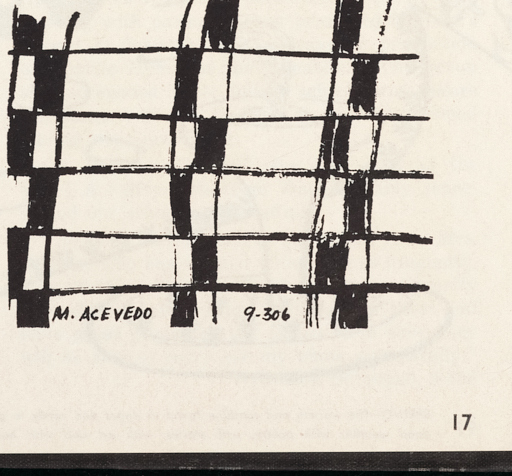 M. ACEVEDO 9-306
17